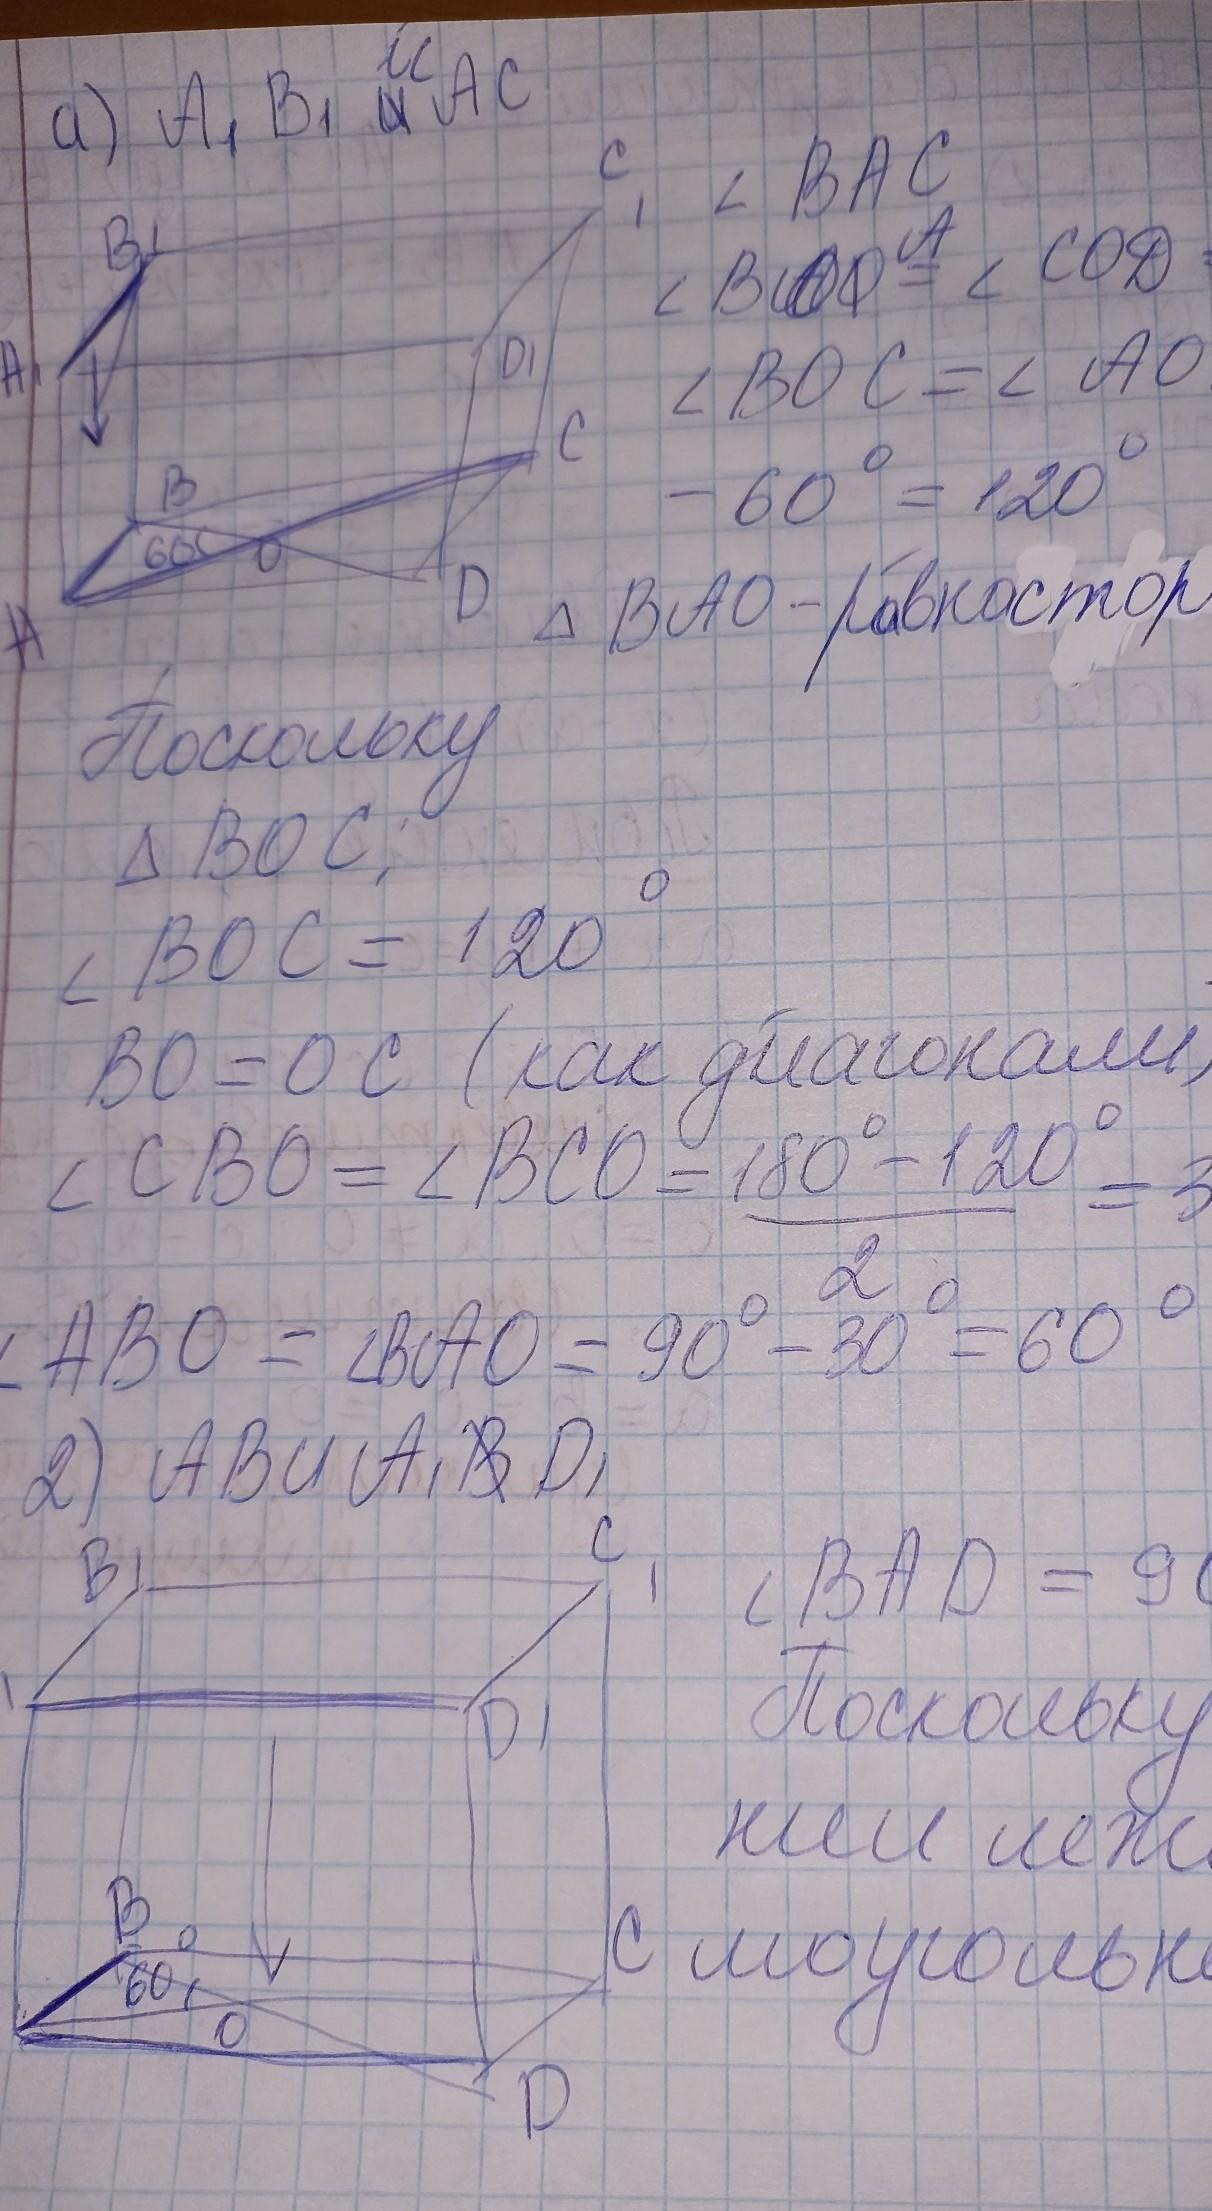 а) A₁ B₁ и AC
C₁
B₁
A₁
D₁
C
B
60°
O
A
D
∠ BAC
∠ BOA = ∠ COD =
∠ BOC = ∠ AO
- 60° = 120°
△ BAO - равностор
Поскольку
△ BOC,
∠ BOC = 120°
BO = OC (как диагонали,
∠ CBO = ∠ BCO = 180° - 120° / 2 = 3
∠ ABO = ∠ BAO = 90° - 30° = 60°
2) AB и A₁ D₁
B₁
C₁
1
D₁
B
60°
O
C
D
∠ BAD = 90
Поскольку
нии лежи
моугольни